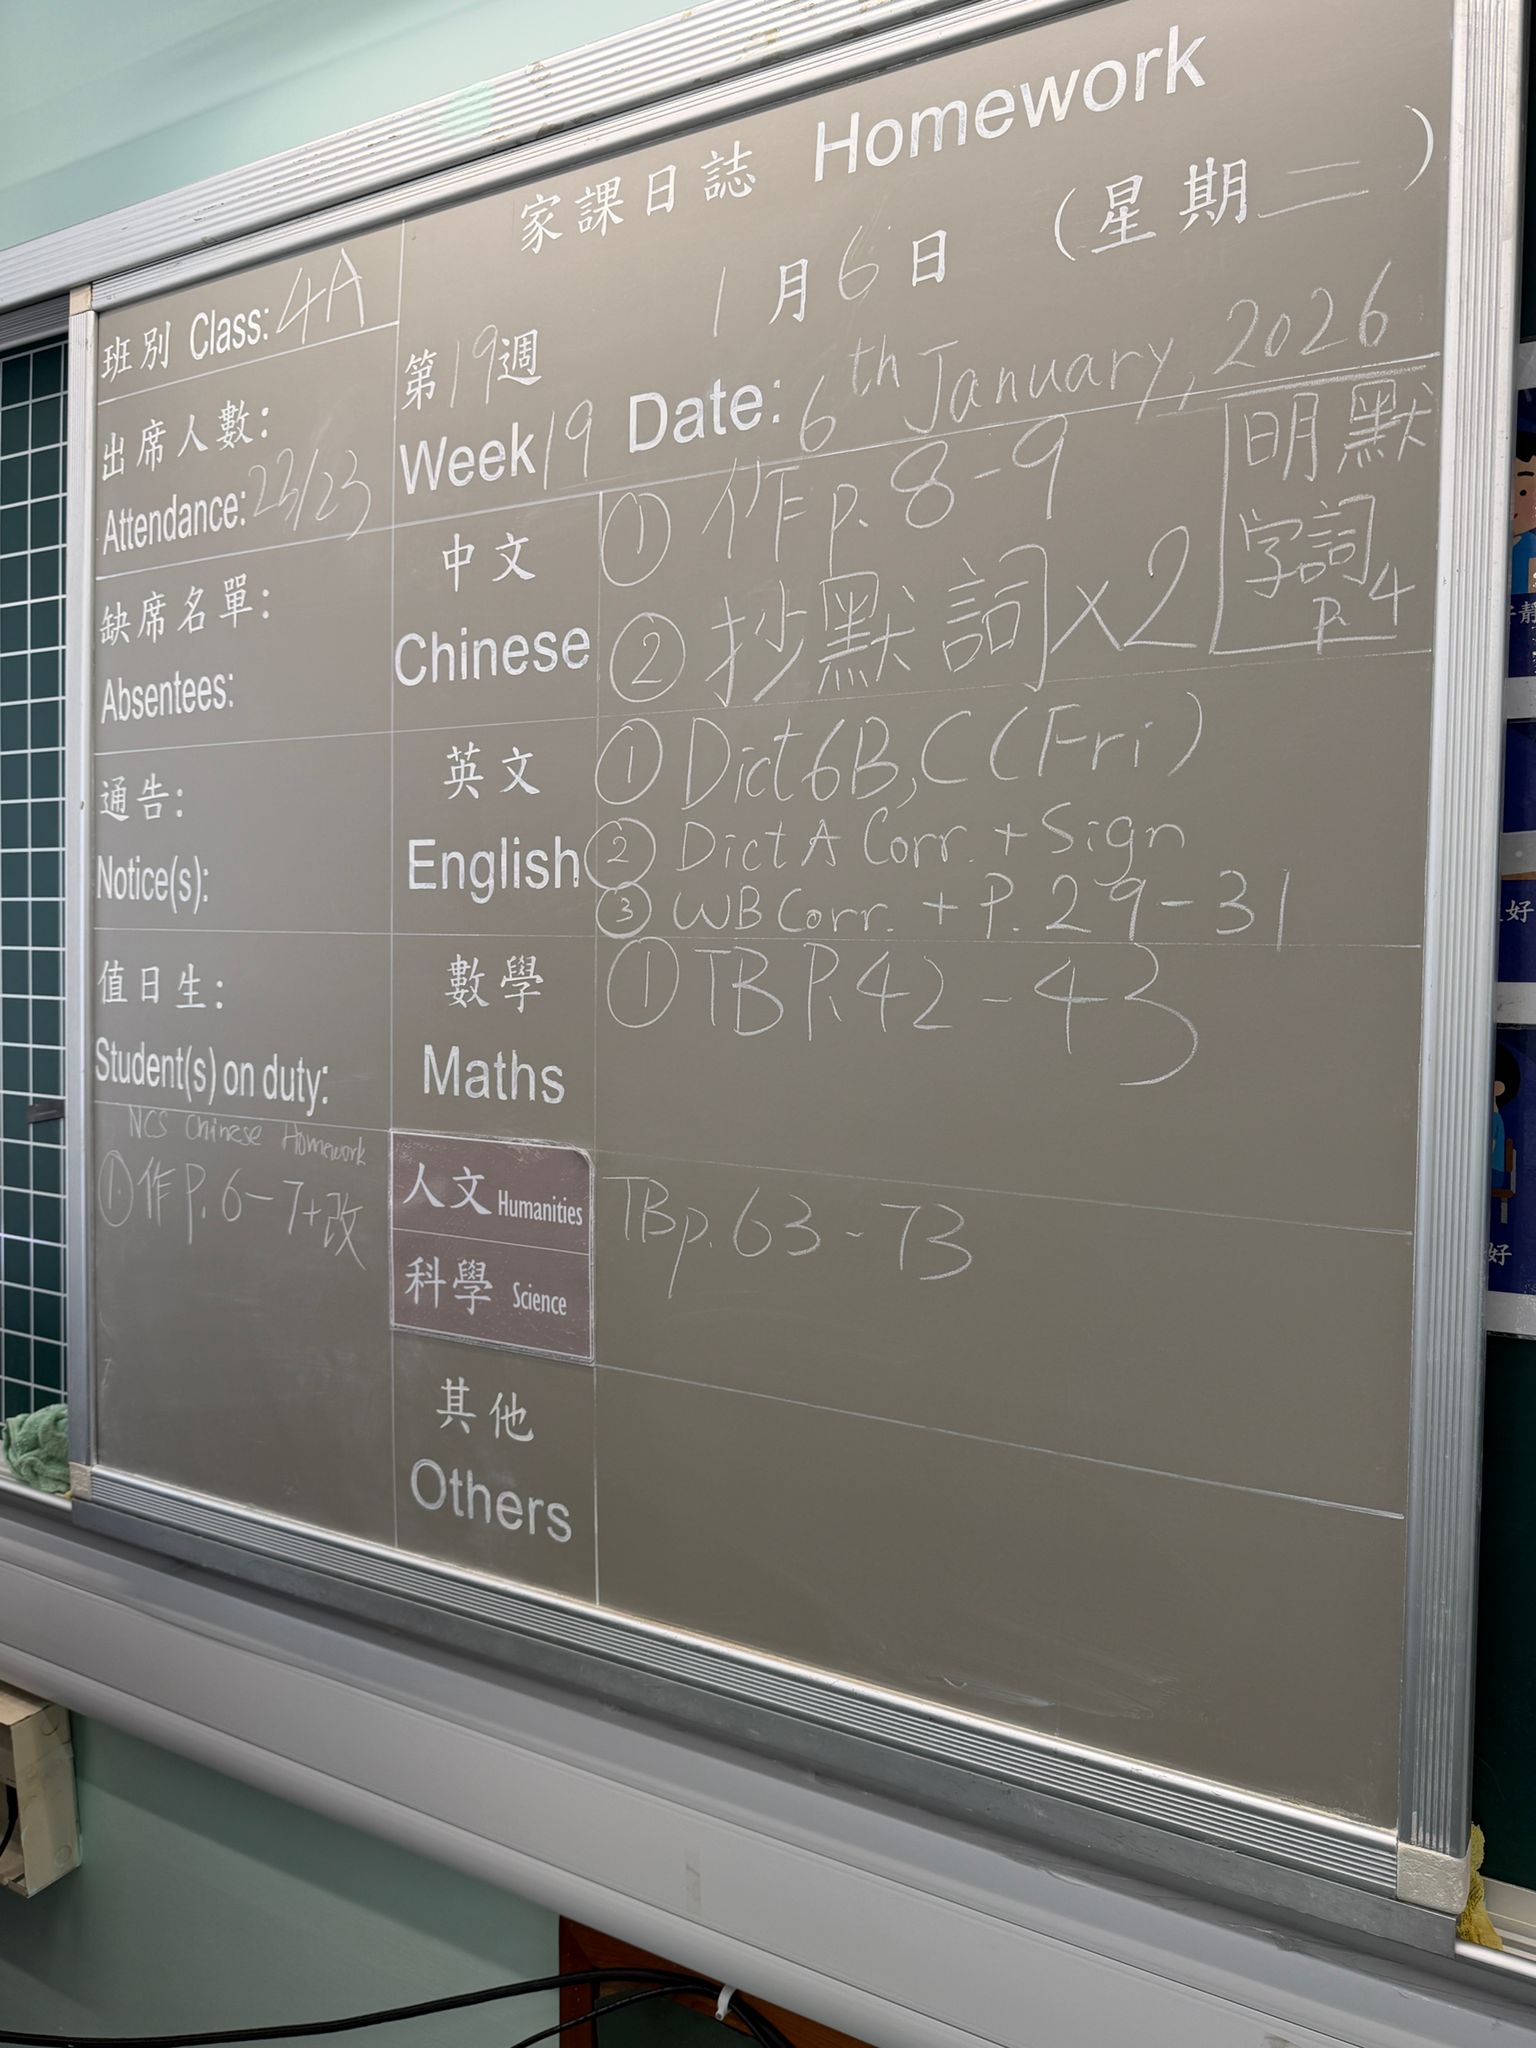 家課日誌 Homework
1月6日 (星期二)
班別 Class: 4A
第19週
Week 19
Date: 6th January, 2026
出席人數:
Attendance: 23/23
缺席名單:
Absentees:
通告:
Notice(s):
值日生:
Student(s) on duty:
NCS Chinese Homework
① 作P. 6-7+改
中文
Chinese
① 作p. 8-9
② 抄默詞×2
明默
字詞
P. 4
英文
English
① Dict 6B, C (Fri)
② Dict A Corr. + Sign
③ WB Corr. + P. 29-31
數學
Maths
① TB P.42-43
人文 Humanities
科學 Science
TB p. 63-73
其他
Others